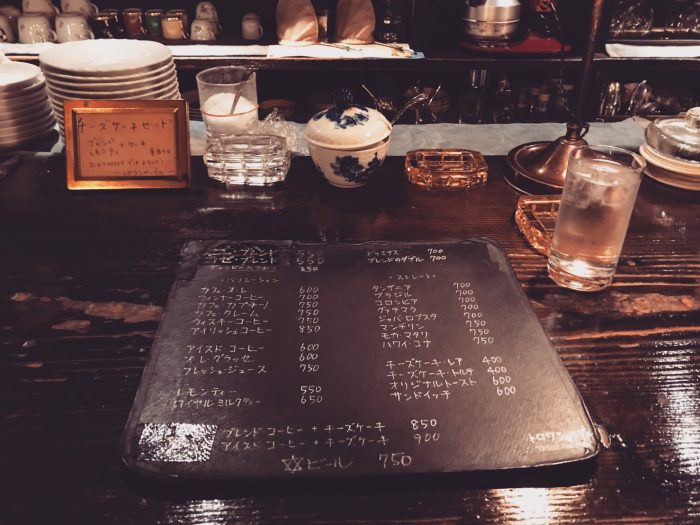 チーズケーキセット
ブレンド + ケーキ
レモンティ
ブレンド 550
ブレンドのおかわり 250
バリエーション
カフェ・オ・レ 600
ウィンナーコーヒー 700
カフェ・カプチーノ 750
カフェ・クレーム 750
ウィスキーコーヒー 750
アイリッシュコーヒー 850
アイスドコーヒー 600
オ・レ・グラッセ 600
フレッシュ・ジュース 750
レモンティー 550
ロイヤルミルクティー 650
ブレンドコーヒー + チーズケーキ 850
アイスドコーヒー + チーズケーキ 900
ビール 750
ドゥミタス 700
ブレンドのダブル 700
・ストレート・
タンザニア 700
ブラジル 700
コロンビア 700
グァテマラ 700
ジャバ・ロブスタ 750
マンデリン 750
モカ・マタリ 750
ハワイ・コナ 750
チーズケーキ・レア 400
チーズケーキ・トルテ 400
オリジナルトースト 600
サンドイッチ 600